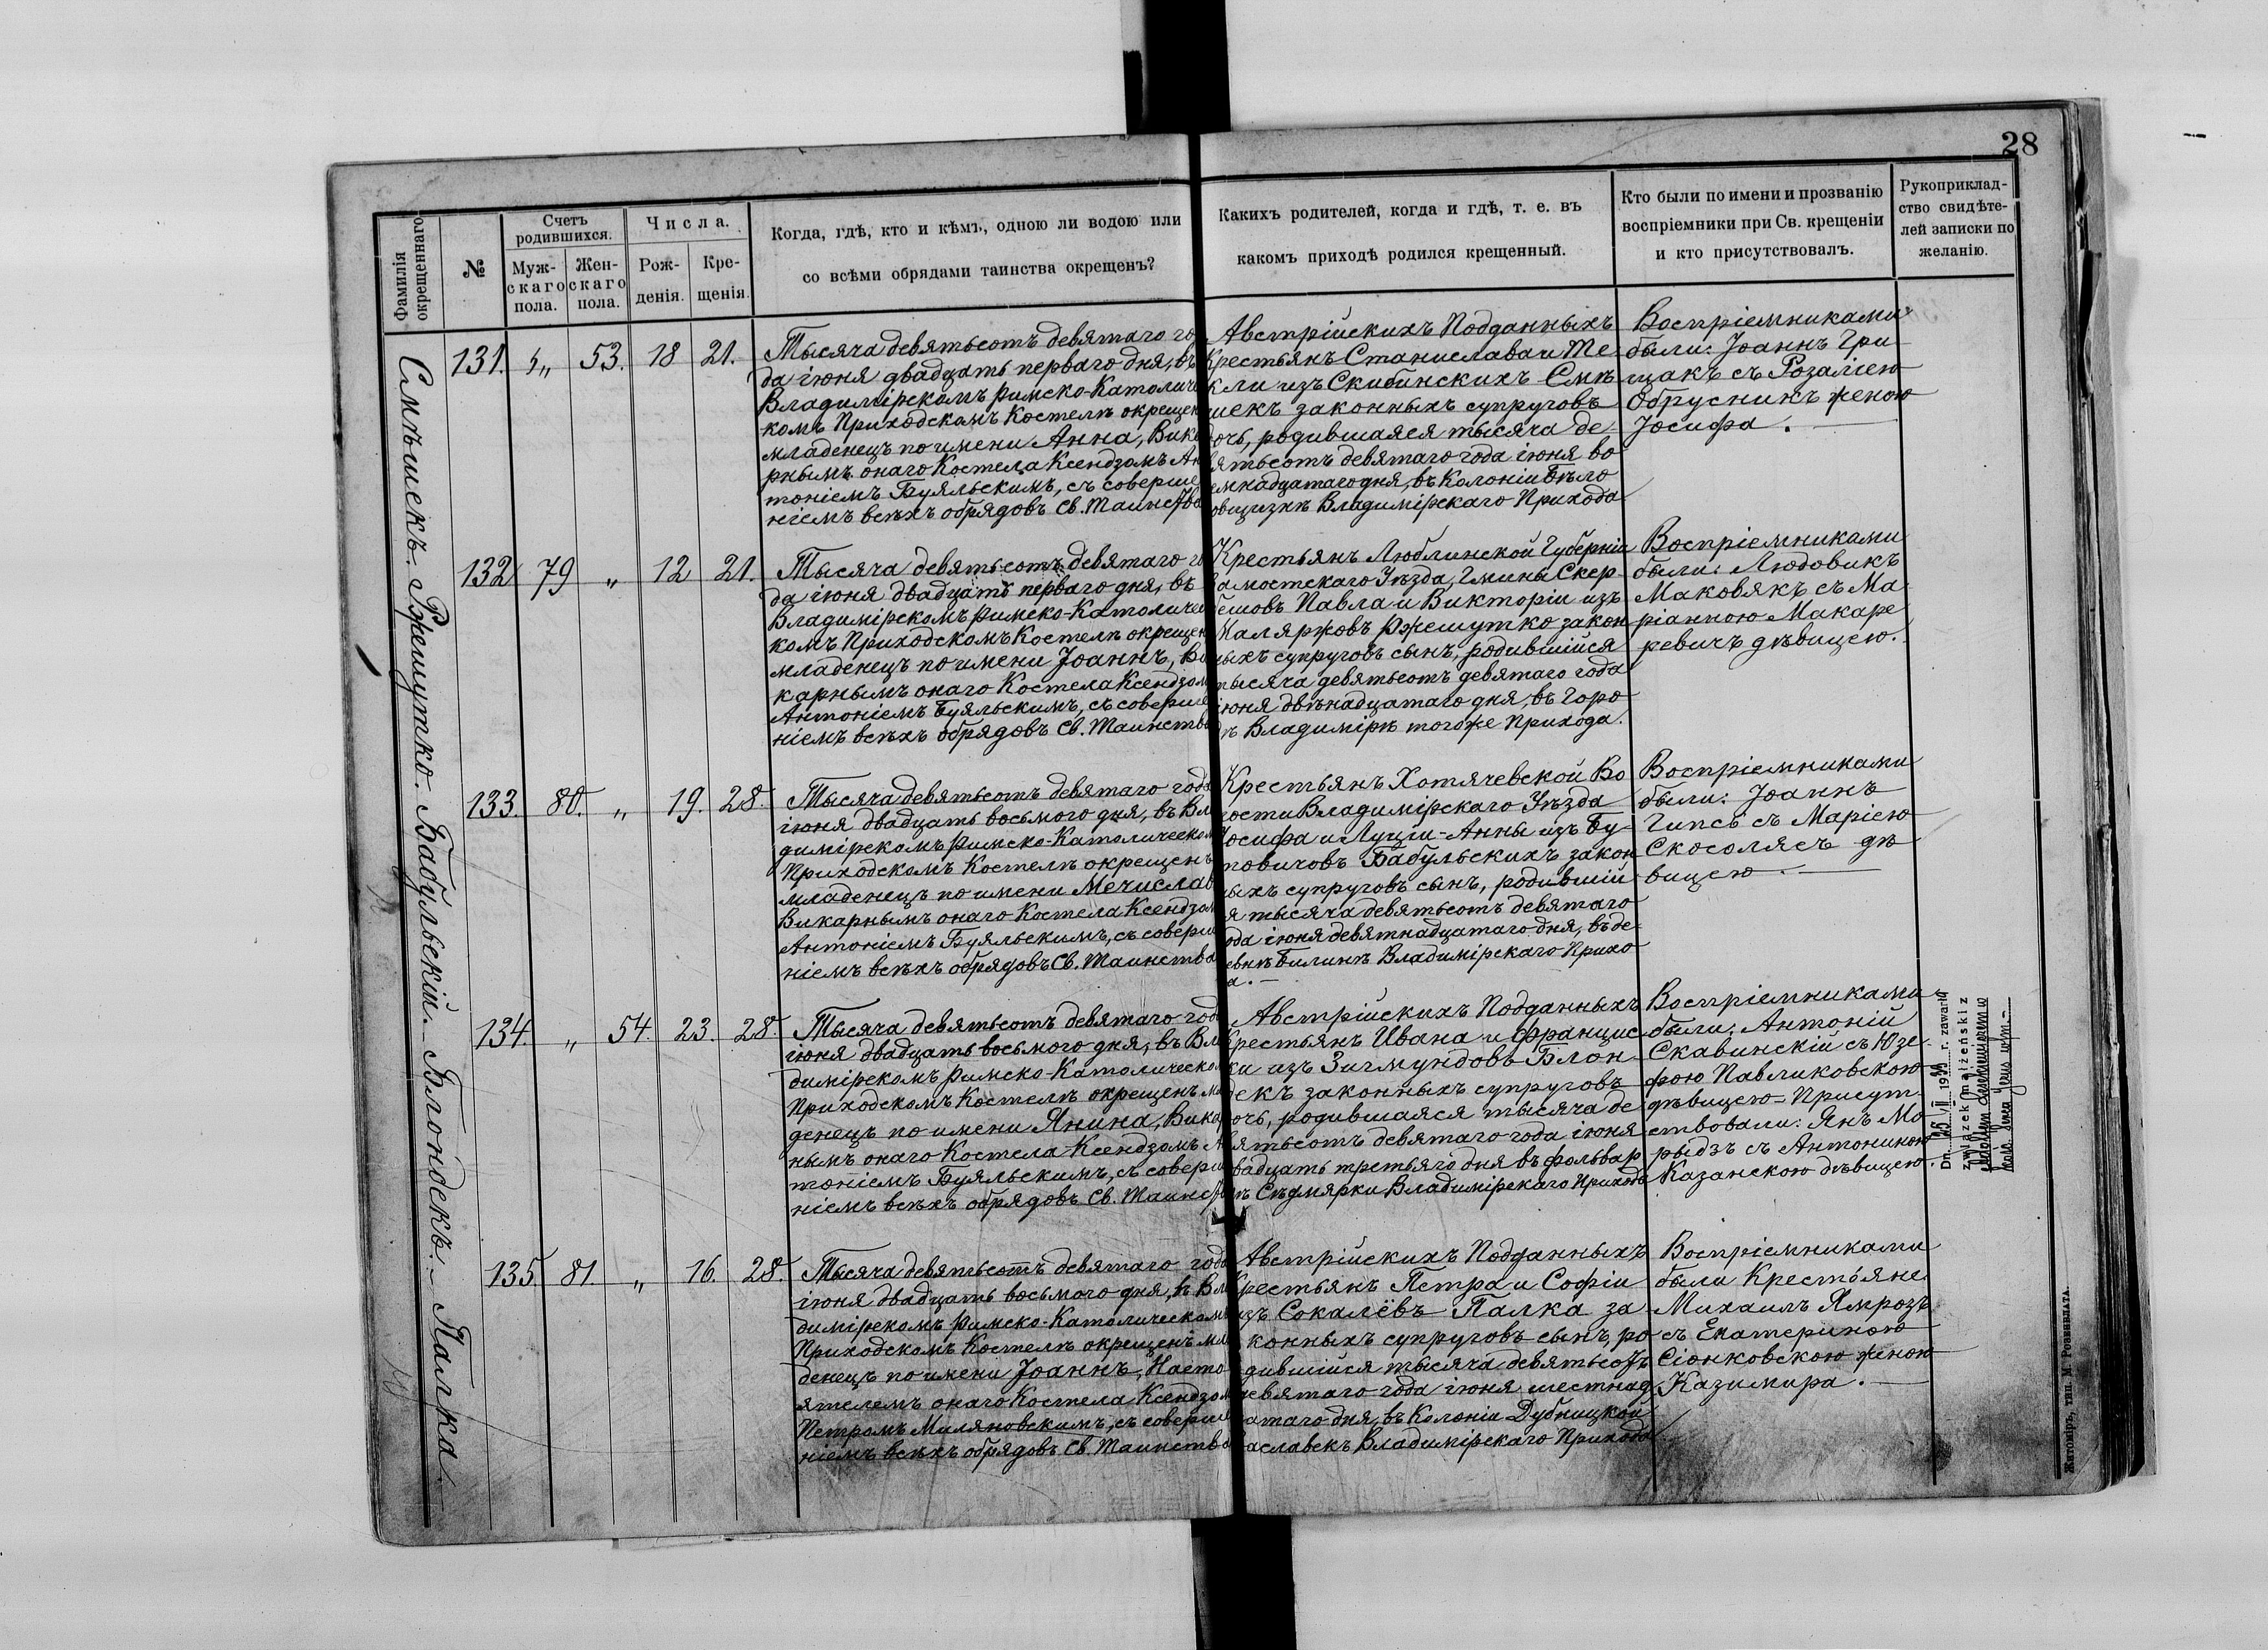 28
Фамилія
окрещеннаго
№
Счетъ
родившихся.
Муж-
скаго
пола.
Жен-
скаго
пола.
Числа.
Рож-
денія.
Кре-
щенія.
Когда, гдѣ, кто и кѣмъ, одною ли водою или
со всѣми обрядами таинства окрещенъ?
Какихъ родителей, когда и гдѣ, т. е. въ
какомъ приходѣ родился крещенный.
Кто были по имени и прозванію
воспріемники при Св. крещеніи
и кто присутствовалъ.
Рукоприклад-
ство свидѣте-
лей записки по
желанію.
Смѣшекъ. Ржешутко. Бабульскій. Блондекъ. Палка.
131. „ 53. 18 21.
Тысяча девятьсотъ девятаго го
да іюня двадцать перваго дня, въ
Владимірскомъ римско-Католиче
комъ Приходскомъ Костелѣ окрещен
младенецъ по имени Анна, Вика
рнымъ онаго Костела Ксендзомъ Ан
тоніемъ Буяльскимъ, съ соверше
ніемъ всѣхъ обрядовъ Св. Таинства
Австрійскихъ Подданныхъ
Крестьянъ Станислава и Те-
кли изъ Скибинскихъ Смѣ
шекъ законныхъ супруговъ
дочь, родившаяся тысяча де-
вятьсотъ девятаго года іюня во
емнадцатаго дня, въ Колоніи Бѣло
овщизнѣ Владимірскаго Прихода
Воспріемниками
были: Іоаннъ Гри-
щакъ съ Розаліею
Обрусникъ женою
Іосифа.
132 79 „ 12 21.
Тысяча девятьсотъ девятаго го
да іюня двадцать перваго дня, въ
Владимірскомъ римско-Католичес
комъ Приходскомъ Костелѣ окрещен
младенецъ по имени Іоаннъ, Ви
карнымъ онаго Костела Ксендзом
Антоніемъ Буяльскимъ, съ соверше
ніемъ всѣхъ обрядовъ Св. Таинства
Крестьянъ Люблинской Губерніи
Замостскаго Уѣзда, Гмины Скер-
бешовъ Павла и Викторіи изъ
Маляржовъ Ржешутко закон
ныхъ супруговъ сынъ, родившійся
тысяча девятьсотъ девятаго года
іюня двѣнадцатаго дня, въ Горо
дѣ Владимірѣ тогоже Прихода.
Воспріемниками
были: Людовикъ
Маковякъ съ Ма-
ріанною Макаре
ревичъ дѣвицею.
133. 80. „ 19. 28.
Тысяча девятьсотъ девятаго года
іюня двадцать восьмого дня, въ Вла
димірскомъ римско-Католическом
Приходскомъ Костелѣ окрещенъ
младенецъ по имени Мечислав
Викарнымъ онаго Костела Ксендзом
Антоніемъ Буяльскимъ, съ соверше
ніемъ всѣхъ обрядовъ Св. Таинства
Крестьянъ Хотячевской Во
лости Владимірскаго Уѣзда
Іосифа и Луціи-Анны изъ Бу-
товичовъ Бабульскихъ закон
ныхъ супруговъ сынъ, родившій
я тысяча девятьсотъ девятаго
ода іюня девятнадцатаго дня, въ де-
евнѣ Билинѣ Владимірскаго Прихо
а. —
Воспріемниками
были: Іоаннъ
Гипсъ съ Маріею
Скосолясъ дѣ
вицею.
134. „ 54. 23. 28.
Тысяча девятьсотъ девятаго год
іюня двадцать восьмого дня, въ Вла
димірскомъ римско-Католическом
Приходскомъ Костелѣ окрещенъ мла
денецъ по имени Янина, Викар
нымъ онаго Костела Ксендзомъ А
тоніемъ Буяльскимъ, съ соверше
ніемъ всѣхъ обрядовъ Св. Таинства
Австрійскихъ Подданныхъ
Крестьянъ Ивана и Францис
ки изъ Зигмундовъ Блон-
декъ законныхъ супруговъ
дочь, родившаяся тысяча де
вятьсотъ девятаго года іюня
двадцать третьяго дня въ фольвар
кѣ Сѣдмярки Владимірскаго Прихода
Воспріемниками
были: Антоній
Скавинскій съ Юзе-
фою Павликовскою
дѣвицею= Присут-
ствовали: Янъ Мо-
рыдзъ съ Антониною
Казанскою дѣвицею
Dn. 25/II 1930 r. zawarła
związek małżeński z
135. 81. „ 16. 28.
Тысяча девятьсотъ девятаго года
іюня двадцать восьмого дня, въ Вла
димірскомъ римско-Католическомъ
Приходскомъ Костелѣ окрещенъ мла
денецъ по имени Іоаннъ, Насто
ятелемъ онаго Костела Ксендзом
Петромъ Миляновскимъ, съ соверше
ніемъ всѣхъ обрядовъ Св. Таинства
Австрійскихъ Подданныхъ
Крестьянъ Петра и Софіи
изъ Сокалёвъ Палка за-
конныхъ супруговъ сынъ, ро
дившійся тысяча девятьсотъ
девятаго года іюня шестнад
атаго дня, въ Колоніи Дубницкой
аславекъ Владимірскаго Прихода
Воспріемниками
были Крестьяне
Михаилъ Ямрозъ
съ Екатериною
Сіонковскою женою
Казимира.
Житоміръ, тип. М. Ровенната.